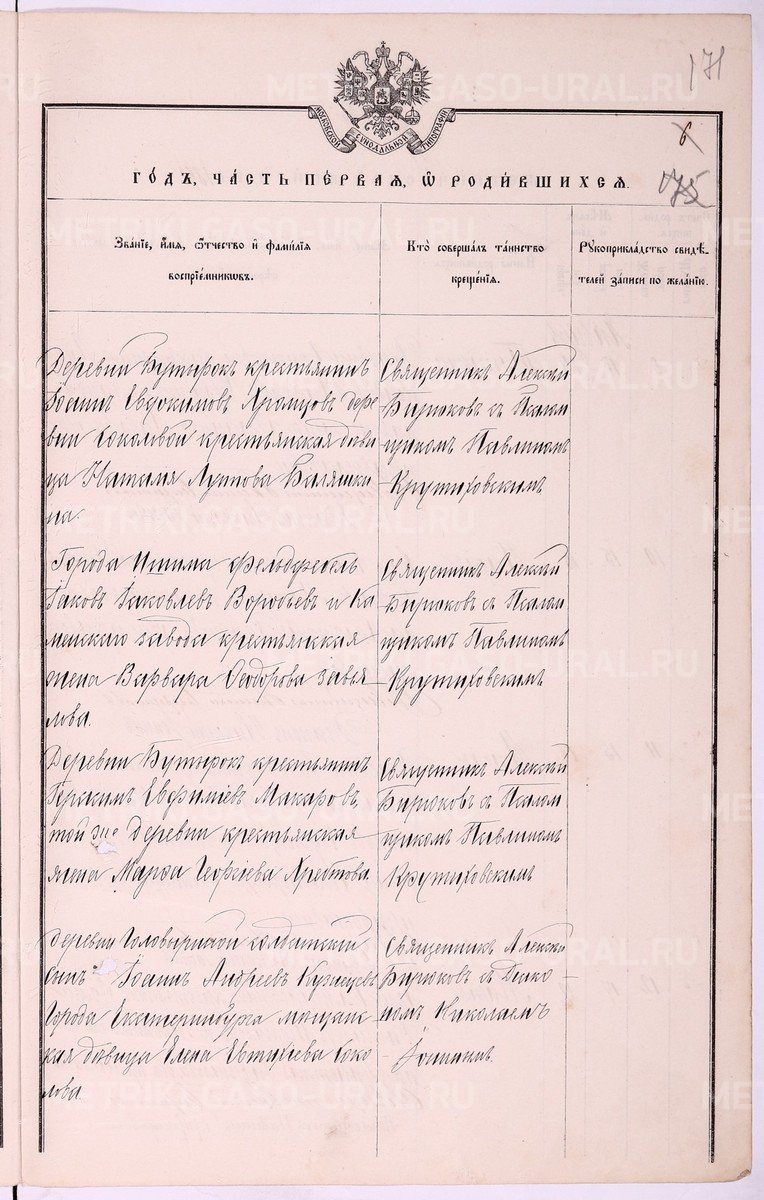 171
6
175
МОСКОВСКОЙ СѴНОДАЛЬНОЙ ТИПОГРАФІИ
ГО́ДЪ, ЧА́СТЬ ПЕ́РВАЯ, Ѽ РОДИ́ВШИХСЯ.
Зва́нїе, и́мя, ѻ́тчество и҆ фами́лїя
воспрїе́мникѡвъ.
Кто̀ соверша́лъ та́инство
креще́нїя.
Рꙋкоприкла́дство свидѣ́-
телей за́писи по жела́нїю.
Деревни Бутырокъ крестьянинъ
Іоаннъ Евдокимовъ Храмцовъ дере
вни Соколовой крестьянская деви
ца Наталия Луппова Баляшки
на.
Священникъ Алексій
Бирюковъ съ Псалом
щикомъ Павлиномъ
Крутиховскимъ
Города Ишима Фельдфебель
Іаковъ Іаковлевъ Воробьевъ и Ка
менскаго завода крестьянская
жена Варвара Ѳеодорова Завья
лова.
Священникъ Алексій
Бирюковъ съ Псалом
щикомъ Павлиномъ
Крутиховскимъ
Деревни Бутырокъ крестьянинъ
Герасимъ Евфиміевъ Макаровъ,
той же деревни крестьянская
жена Марфа Георгіева Хребтова.
Священникъ Алексій
Бирюковъ съ Псалом
щикомъ Павлиномъ
Крутиховскимъ
Деревни Головириной солдатскій
сынъ Іоаннъ Андреевъ Кузнецовъ
Города Екатеринбурга мещанс
кая девица Елена Евтихіева Соко
лова.
Священникъ Алексій
Бирюковъ съ Діако
номъ Николаемъ
METRIKI.GASO-URAL.RU